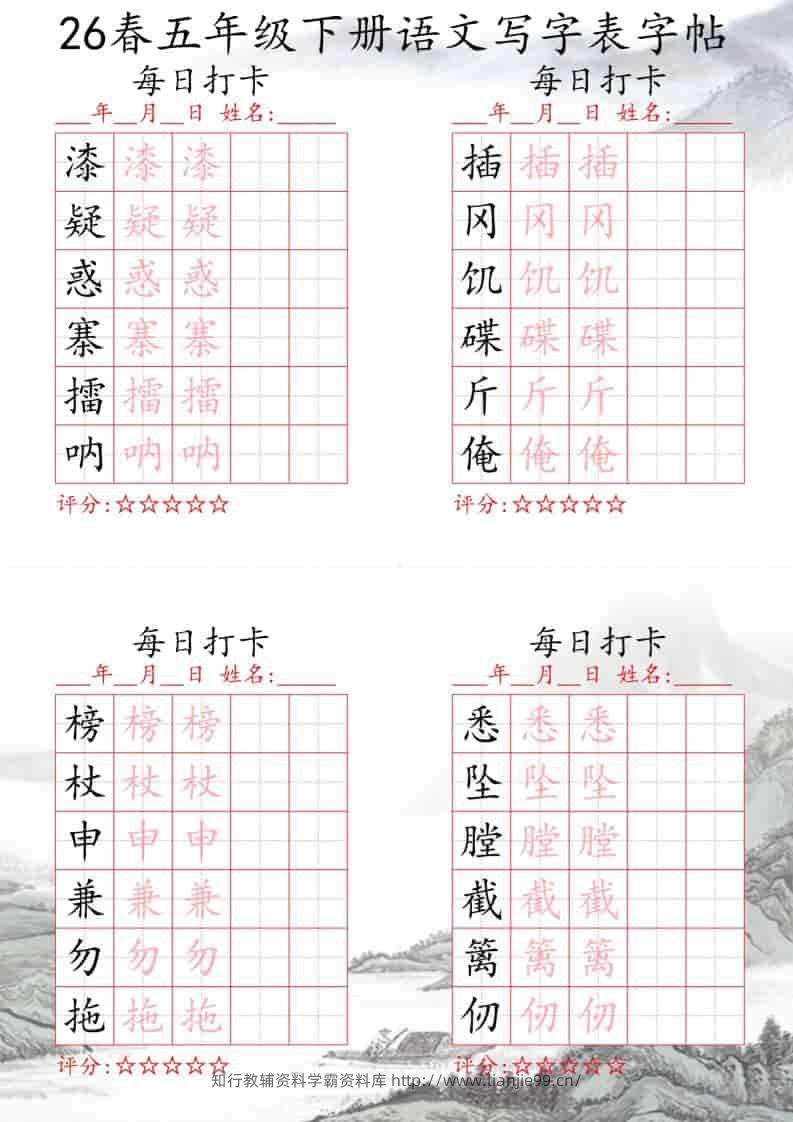 26春五年级下册语文写字表字帖
每日打卡
___年__月__日 姓名:_____
漆 漆 漆
疑 疑 疑
惑 惑 惑
寨 寨 寨
擂 擂 擂
呐 呐 呐
评分:☆☆☆☆☆
每日打卡
___年__月__日 姓名:_____
插 插 插
冈 冈 冈
饥 饥 饥
碟 碟 碟
斤 斤 斤
俺 俺 俺
评分:☆☆☆☆☆
每日打卡
___年__月__日 姓名:_____
榜 榜 榜
杖 杖 杖
申 申 申
兼 兼 兼
勿 勿 勿
拖 拖 拖
评分:☆☆☆☆☆
每日打卡
___年__月__日 姓名:_____
悉 悉 悉
坠 坠 坠
膛 膛 膛
截 截 截
篱 篱 篱
仞 仞 仞
评分:☆☆☆☆☆
知行教辅资料学霸资料库 http://www.lianjie99.cn/